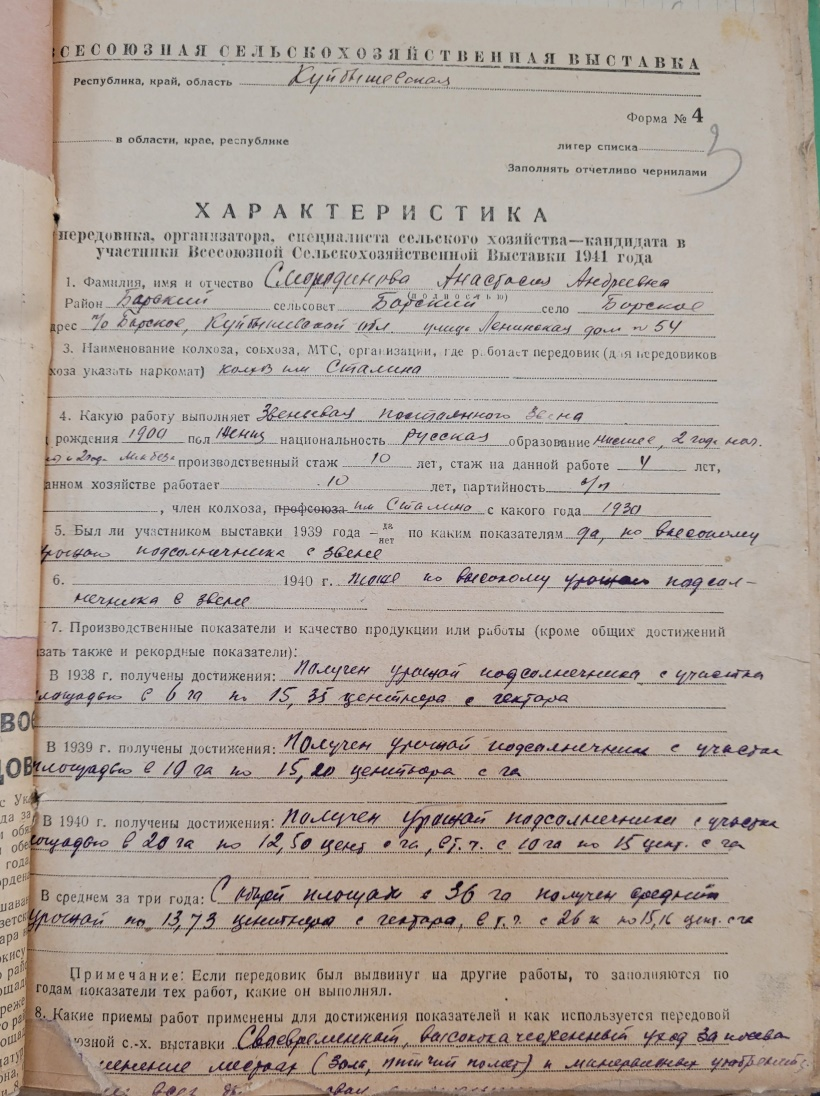 ВСЕСОЮЗНАЯ СЕЛЬСКОХОЗЯЙСТВЕННАЯ ВЫСТАВКА
Республика, край, область Куйбышевская
Форма № 4
в области, крае, республике
литер списка
3
Заполнять отчетливо чернилами
ХАРАКТЕРИСТИКА
передовика, организатора, специалиста сельского хозяйства—кандидата в
участники Всесоюзной Сельскохозяйственной Выставки 1941 года
1. Фамилия, имя и отчество Смородинова Анастасия Андреевна
(полностью)
Район Борский сельсовет Борский село Борское
дрес п/о Борское, Куйбышевской обл. улица Ленинская дом № 54
3. Наименование колхоза, совхоза, МТС, организации, где работает передовик (для передовиков
хоза указать наркомат) колхоз им Сталина
4. Какую работу выполняет Звеньевая постоянного звена
рождения 1900 пол женщ национальность русская образование низшее, 2 года нач.
и 2 года ликбеза производственный стаж 10 лет, стаж на данной работе 4 лет,
анном хозяйстве работает 10 лет, партийность б/п
, член колхоза, профсоюза им Сталина с какого года 1930
5. Был ли участником выставки 1939 года — да нет по каким показателям да, по высокому
урожаю подсолнечника в звене
6. 1940 г. тоже по высокому урожаю подсол-
нечника в звене
7. Производственные показатели и качество продукции или работы (кроме общих достижений
зать также и рекордные показатели):
В 1938 г. получены достижения: Получен урожай подсолнечника с участка
лощадью в 6 га по 15,35 центнера с гектара
В 1939 г. получены достижения: Получен урожай подсолнечник с участка
площадью в 10 га по 15,20 центнера с га
В 1940 г. получены достижения: Получен урожай подсолнечника с участка
лощадью в 20 га по 12,50 цент с га, в т.ч. с 10 га по 15 цент. с га
В среднем за три года: С общей площади в 36 га получен средний
урожай по 13,73 центнера с гектара, в т.ч. с 26 га по 15,16 цент. с га
Примечание: Если передовик был выдвинут на другие работы, то заполняются по
годам показатели тех работ, какие он выполнял.
8. Какие приемы работ применены для достижения показателей и как используется передовой
юзной с.-х. выставки Своевременный, высококачественный уход за посева
менение местных (зола, птичий помет) и минеральных удобрений
всег